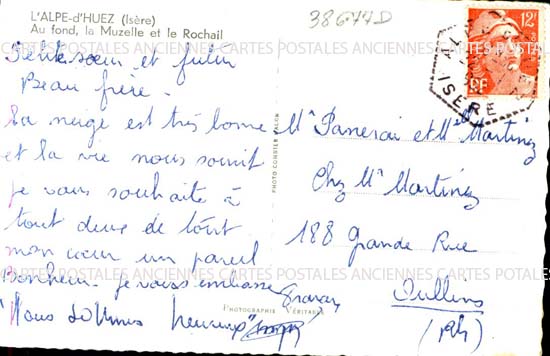 L'ALPE-d'HUEZ (Isère)
Au fond, la Muzelle et le Rochail
38644D
12F
RF
ISERE
Petite sœur et futur
Beau frère.
La neige est très bonne
et la vie nous sourit
je vous souhaite à
tout deux de tout
mon cœur un pareil
Bonheur. je vous embrasse
"Nous sommes heureux"
PHOTO CONSTER VALCK
PHOTOGRAPHIE VÉRITABLE
Mr Panserai et Mlle Martinez
Chez Mr Martinez
188 Grande Rue
Oullins
CARTES POSTALES ANCIENNES CARTES POSTALES ANCIENNES CARTES POSTALES ANCIENNES